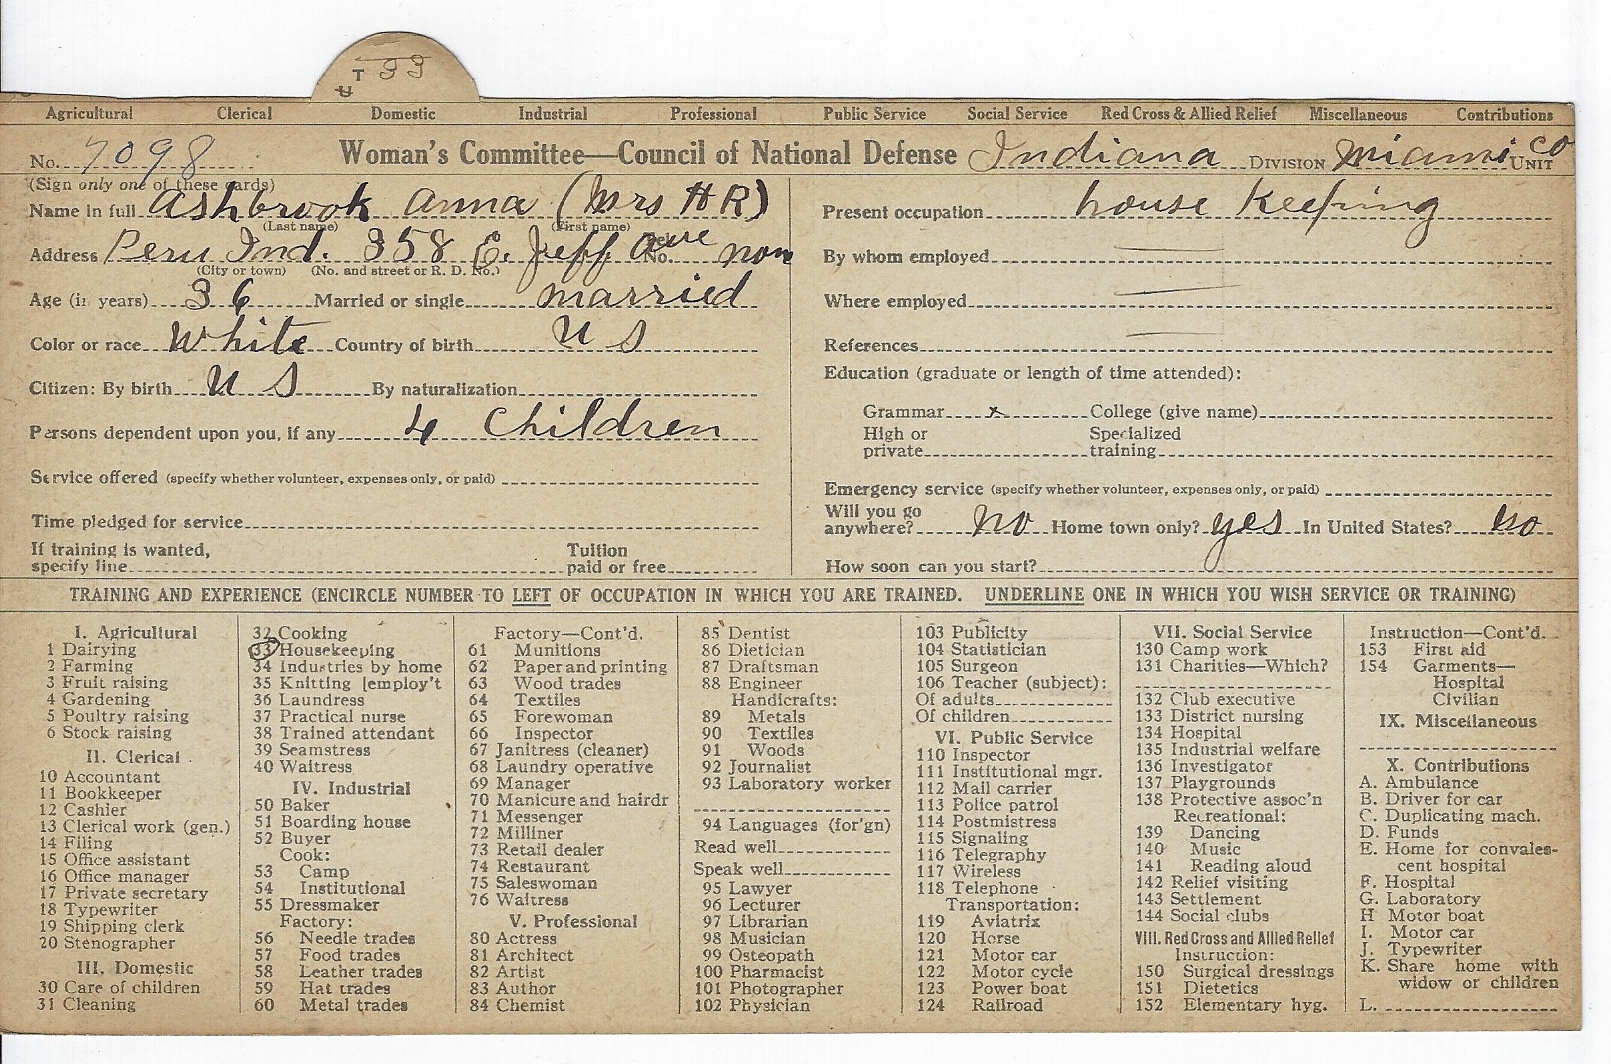 T 33
U
Agricultural Clerical Domestic Industrial Professional Public Service Social Service Red Cross & Allied Relief Miscellaneous Contributions
No. 7098 Woman's Committee—Council of National Defense Indiana DIVISION Miami Co UNIT
(Sign only one of these cards)
Name in full Ashbrook Anna (Mrs H R)
(Last name) (First name)
Address Peru Ind. 358 E. Jeff Ave Tel. No. non
(City or town) (No. and street or R. D. No.)
Age (in years) 36 Married or single married
Color or race White Country of birth U S
Citizen: By birth U S By naturalization
Persons dependent upon you, if any 4 Children
Service offered (specify whether volunteer, expenses only, or paid)
Time pledged for service
If training is wanted, specify line Tuition paid or free
Present occupation house Keeping
By whom employed
Where employed
References
Education (graduate or length of time attended):
Grammar x College (give name)
High or private Specialized training
Emergency service (specify whether volunteer, expenses only, or paid)
Will you go anywhere? no Home town only? yes In United States? no
How soon can you start?
TRAINING AND EXPERIENCE (ENCIRCLE NUMBER TO LEFT OF OCCUPATION IN WHICH YOU ARE TRAINED. UNDERLINE ONE IN WHICH YOU WISH SERVICE OR TRAINING)
I. Agricultural
1 Dairying
2 Farming
3 Fruit raising
4 Gardening
5 Poultry raising
6 Stock raising
II. Clerical
10 Accountant
11 Bookkeeper
12 Cashier
13 Clerical work (gen.)
14 Filing
15 Office assistant
16 Office manager
17 Private secretary
18 Typewriter
19 Shipping clerk
20 Stenographer
III. Domestic
30 Care of children
31 Cleaning
32 Cooking
33 Housekeeping
34 Industries by home
35 Knitting [employ't
36 Laundress
37 Practical nurse
38 Trained attendant
39 Seamstress
40 Waitress
IV. Industrial
50 Baker
51 Boarding house
52 Buyer
Cook:
53 Camp
54 Institutional
55 Dressmaker
Factory:
56 Needle trades
57 Food trades
58 Leather trades
59 Hat trades
60 Metal trades
Factory—Cont'd.
61 Munitions
62 Paper and printing
63 Wood trades
64 Textiles
65 Forewoman
66 Inspector
67 Janitress (cleaner)
68 Laundry operative
69 Manager
70 Manicure and hairdr
71 Messenger
72 Milliner
73 Retail dealer
74 Restaurant
75 Saleswoman
76 Waitress
V. Professional
80 Actress
81 Architect
82 Artist
83 Author
84 Chemist
85 Dentist
86 Dietician
87 Draftsman
88 Engineer
Handicrafts:
89 Metals
90 Textiles
91 Woods
92 Journalist
93 Laboratory worker
94 Languages (for'gn)
Read well
Speak well
95 Lawyer
96 Lecturer
97 Librarian
98 Musician
99 Osteopath
100 Pharmacist
101 Photographer
102 Physician
103 Publicity
104 Statistician
105 Surgeon
106 Teacher (subject):
Of adults
Of children
VI. Public Service
110 Inspector
111 Institutional mgr.
112 Mail carrier
113 Police patrol
114 Postmistress
115 Signaling
116 Telegraphy
117 Wireless
118 Telephone
Transportation:
119 Aviatrix
120 Horse
121 Motor car
122 Motor cycle
123 Power boat
124 Railroad
VII. Social Service
130 Camp work
131 Charities—Which?
132 Club executive
133 District nursing
134 Hospital
135 Industrial welfare
136 Investigator
137 Playgrounds
138 Protective assoc'n
Recreational:
139 Dancing
140 Music
141 Reading aloud
142 Relief visiting
143 Settlement
144 Social clubs
VIII. Red Cross and Allied Relief
Instruction:
150 Surgical dressings
151 Dietetics
152 Elementary hyg.
Instruction—Cont'd.
153 First aid
154 Garments—
Hospital
Civilian
IX. Miscellaneous
X. Contributions
A. Ambulance
B. Driver for car
C. Duplicating mach.
D. Funds
E. Home for convales-
cent hospital
F. Hospital
G. Laboratory
H Motor boat
I. Motor car
J. Typewriter
K. Share home with
widow or children
L.